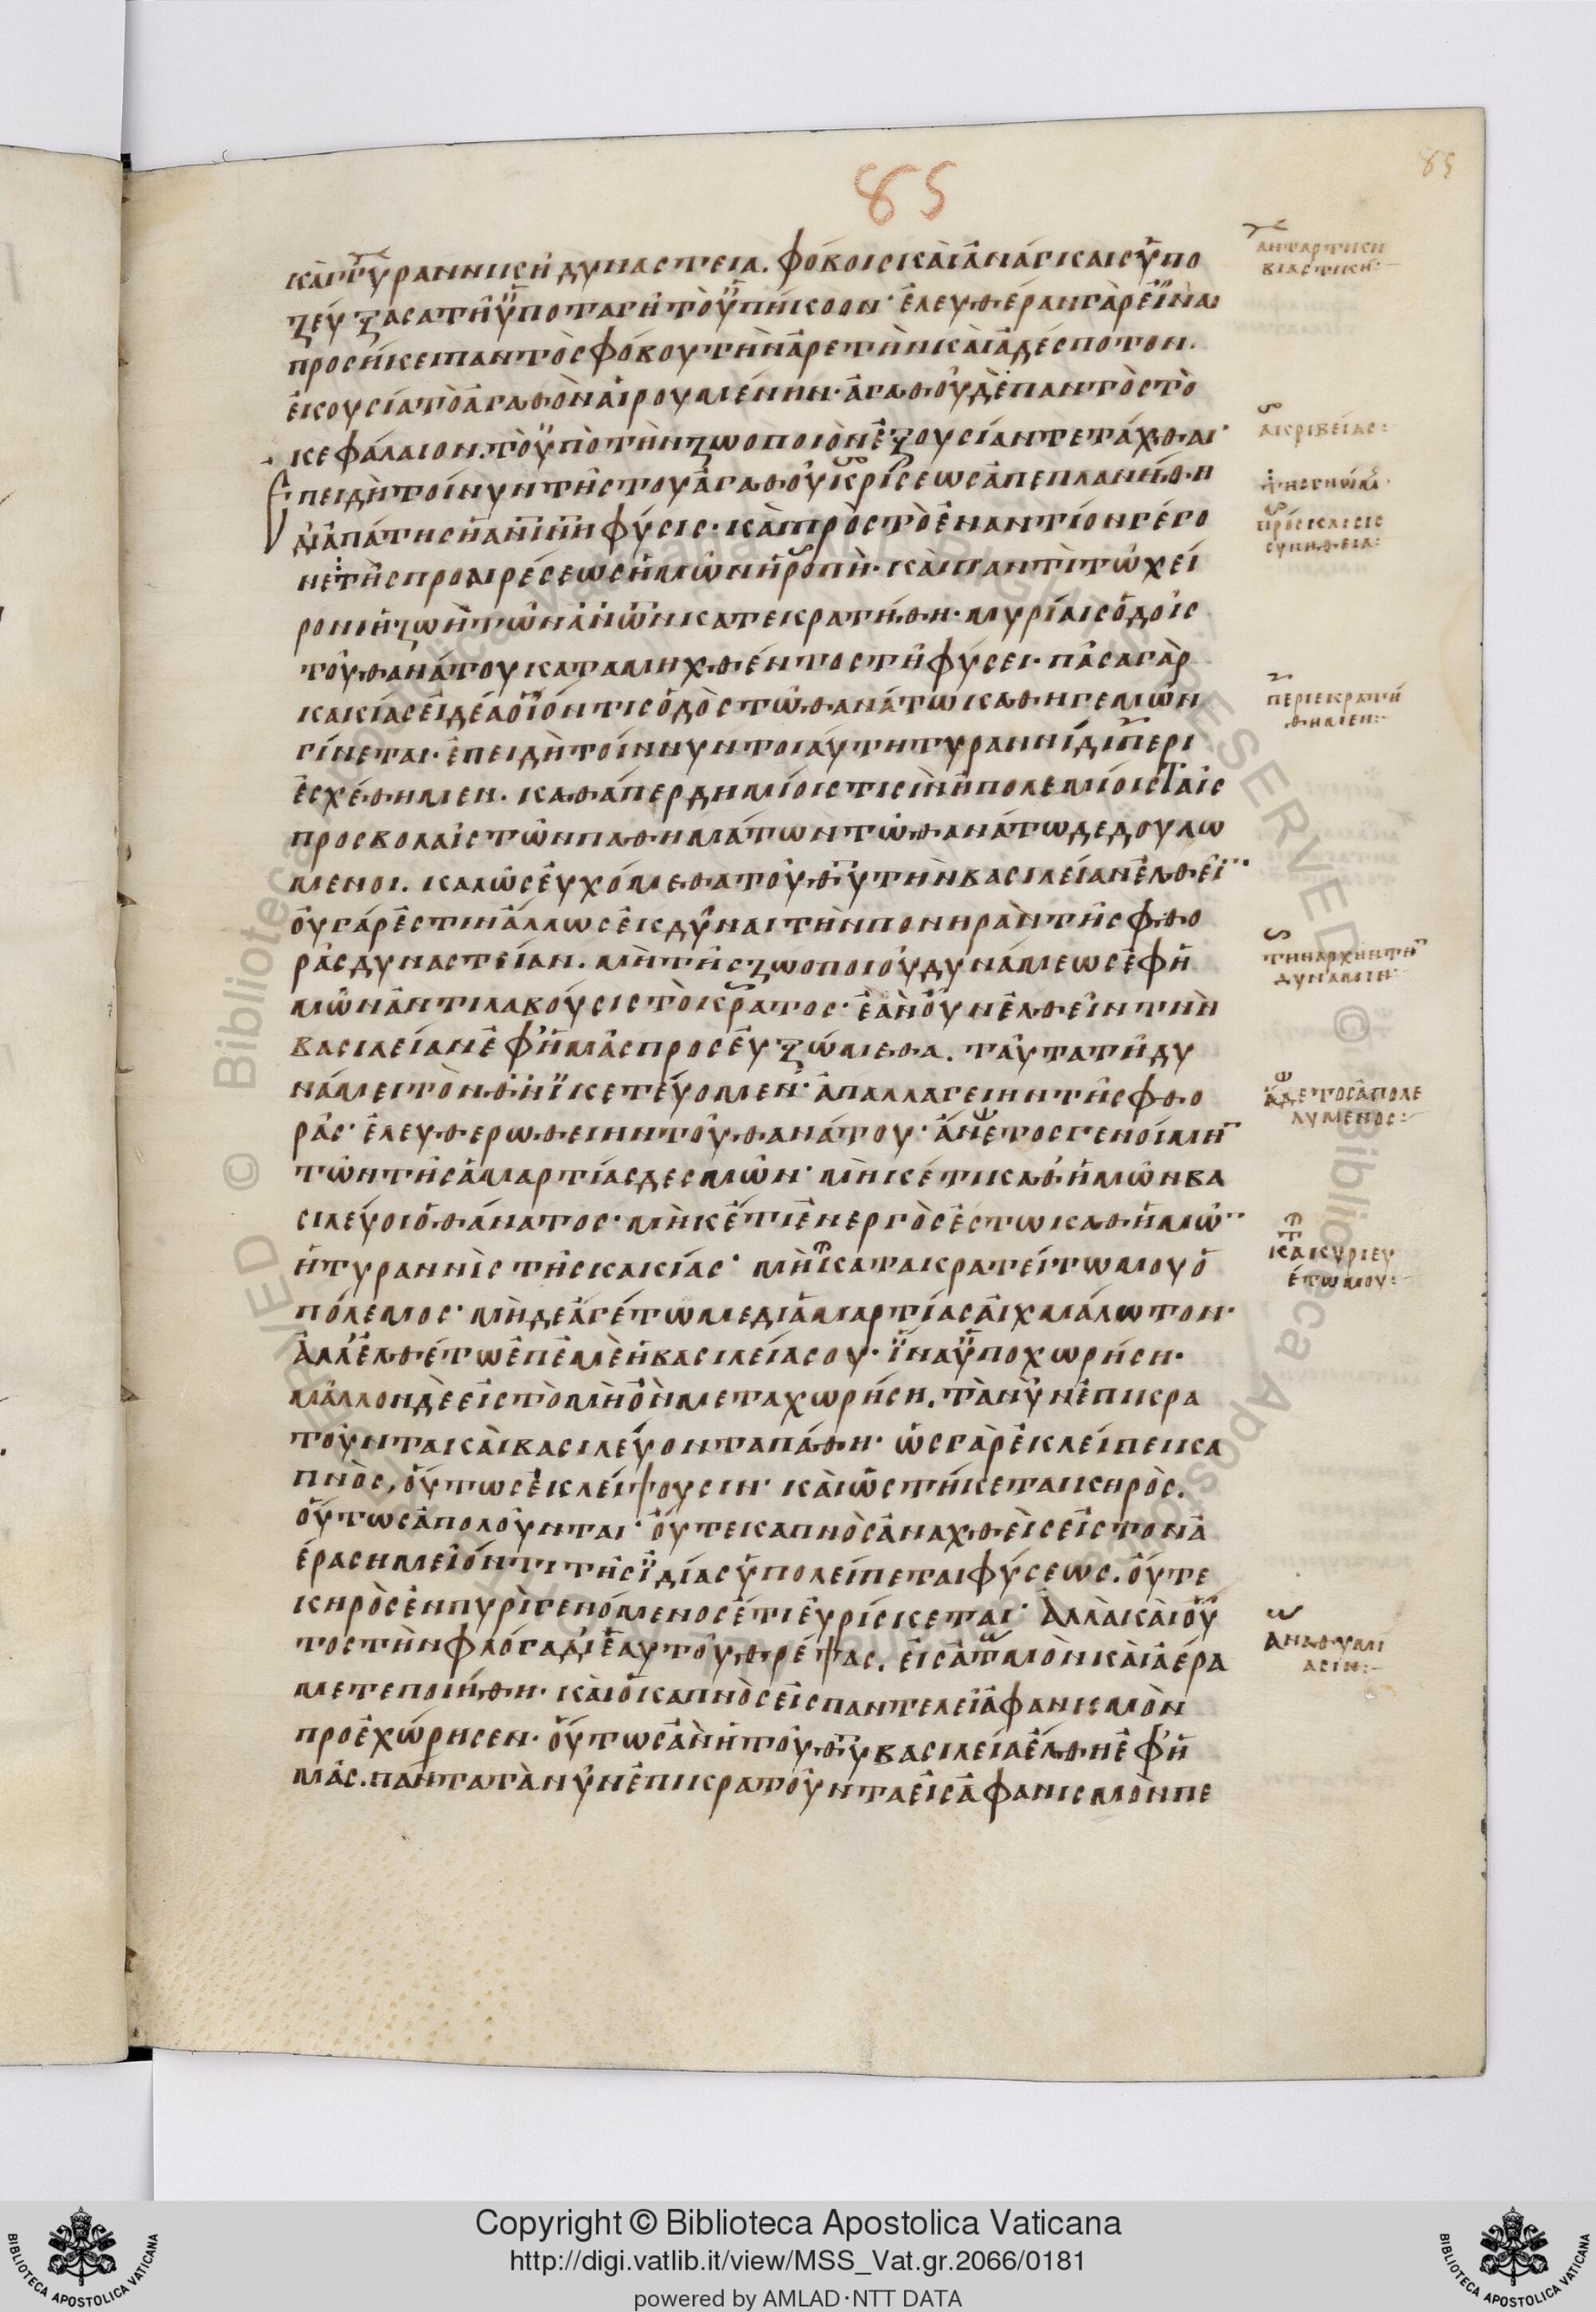 85
85
καὶ τυραννικῆ δυναστεία. φόβοις καὶ ἀνάγκαις ὑπο
ζεύξασα τῆ ὑποταγῆ τὸ ὑπήκοον· ἐλευθέραν γὰρ εἶναι
προσήκει παντὸς φόβου τὴν ἀρετὴν καὶ ἀδέσποτον.
ἑκουσία τὸ ἀγαθὸν αἱρουμένην· ἀγαθοῦ δὲ παντὸς τὸ
κεφάλαιον. τὸ ὑπὸ τὴν ζωοποιὸν ἐξουσίαν τετάχθαι·
Ἐπειδὴ τοίνυν τῆς τοῦ ἀγαθοῦ κρίσεως ἀπεπλανήθη
δι ἀπάτης ἡ ἀνινη φύσις· καὶ πρὸς τὸ ἐναντίον γέγο
νε τῆς προαιρέσεως ἡμῶν ἡ ῥοπὴ· καὶ παντὶ τῶ χεί
ρονι ἡ ζωὴ τῶν ἀνων κατεκρατήθη· μυρίαις ὁδοῖς
τοῦ θανάτου καταμιχθέντος τῆ φύσει· πᾶσα γὰρ
κακίας εἰδέα οἷόν τις ὁδὸς τῶ θανάτω καθηγεμὼν
γίνεται· ἐπειδὴ τοίνυν τοιαύτη τυραννίδι περι
εσχέθημεν. καθάπερ δημίοις τισὶν ἢ πολεμίοις ταῖς
προσβολαῖς τῶν παθημάτων τῶ θανάτω δεδουλω
μένοι. καλῶς εὐχόμεθα τοῦ θυ τὴν βασιλείαν ἐλθεῖ
οὐ γάρ ἐστιν ἄλλως ἐκδῦναι τὴν πονηρὰν τῆς φθο
ρᾶς δυναστείαν. μὴ τῆς ζωοποιοῦ δυνάμεως ἐφ ἡ
μῶν ἀντιλαβούσις τὸ κράτος· ἐὰν οὖν ἐλθεῖν τὴν
βασιλείαν ἐφ ἡμᾶς προσευξώμεθα. ταῦτα τῆ δυ
νάμει τὸν θν ἱκετεύομεν· ἀπαλλαγείην τῆς φθο
ρᾶς· ἐλευθερωθείην τοῦ θανάτου· ἄνετος γενοίμη
τῶν τῆς ἁμαρτίας δεσμῶν· μηκέτι καθ ἡμῶν βα
σιλεύοι ὁ θάνατος· μὴκέτι ἐνεργὸς ἔστω καθ ἡμῶ
ἡ τυραννὶς τῆς κακίας· μὴ κατακρατείτω μου ὁ
πόλεμος· μὴδε ἀγέτω με δι ἁμαρτίας αἰχμάλωτον·
ἀλλ ἐλθέτω ἐπ ἐμὲ ἡ βασιλεία σου· ἵνα ὑποχωρήση·
μᾶλλον δὲ εἰς τὸ μὴ ὂν μεταχωρήση. τὰ νῦν ἐπικρα
τοῦντα καὶ βασιλεύοντα πάθη· ὡς γὰρ ἐκλείπει κα
πνὸς, οὕτως ἐκλείψουσιν· καὶ ὡς τήκεται κηρὸς.
οὕτως ἀπολοῦνται· οὔτε καπνὸς ἀναχθεὶς εἰς τὸν ἀ
έρα σημεῖόν τι τῆς ἰδίας ὑπολείπεται φύσεως. οὔτε
κηρὸς ἐν πυρὶ γενόμενος ἔτι εὑρίσκεται· ἀλλὰ καὶ οὗ
τος τὴν φλόγα δι ἑαυτοῦ θρέψας. εἰς ἀτμὸν καὶ ἀέρα
μετεποιήθη· καὶ ὁ καπνὸς εἰς παντελεῖ ἀφανισμὸν
προεχώρησεν· οὕτως ἂν ἡ τοῦ θυ βασιλεία ἔλθη ἐφ ἡ
μᾶς. πάντα τὰ νῦν ἐπικρατοῦντα εἰς ἀφανισμὸν πε
ἀνταρτικὴ
βιαστικῆ:
ἀκριβείας:
τῆς γνώμ
πρόσκλισις
συνήθεια:
περιεκρατή
θημεν:
τὴν ἀρχὴν τὴν
δύναμιν
ἄδετος ἀπολε
λυμένος:
κατακυριευ
έτω μου:
ἀναθυμί
ασιν:
Copyright © Biblioteca Apostolica Vaticana
http://digi.vatlib.it/view/MSS_Vat.gr.2066/0181
powered by AMLAD·NTT DATA
BIBLIOTECA APOSTOLICA VATICANA
BIBLIOTECA APOSTOLICA VATICANA